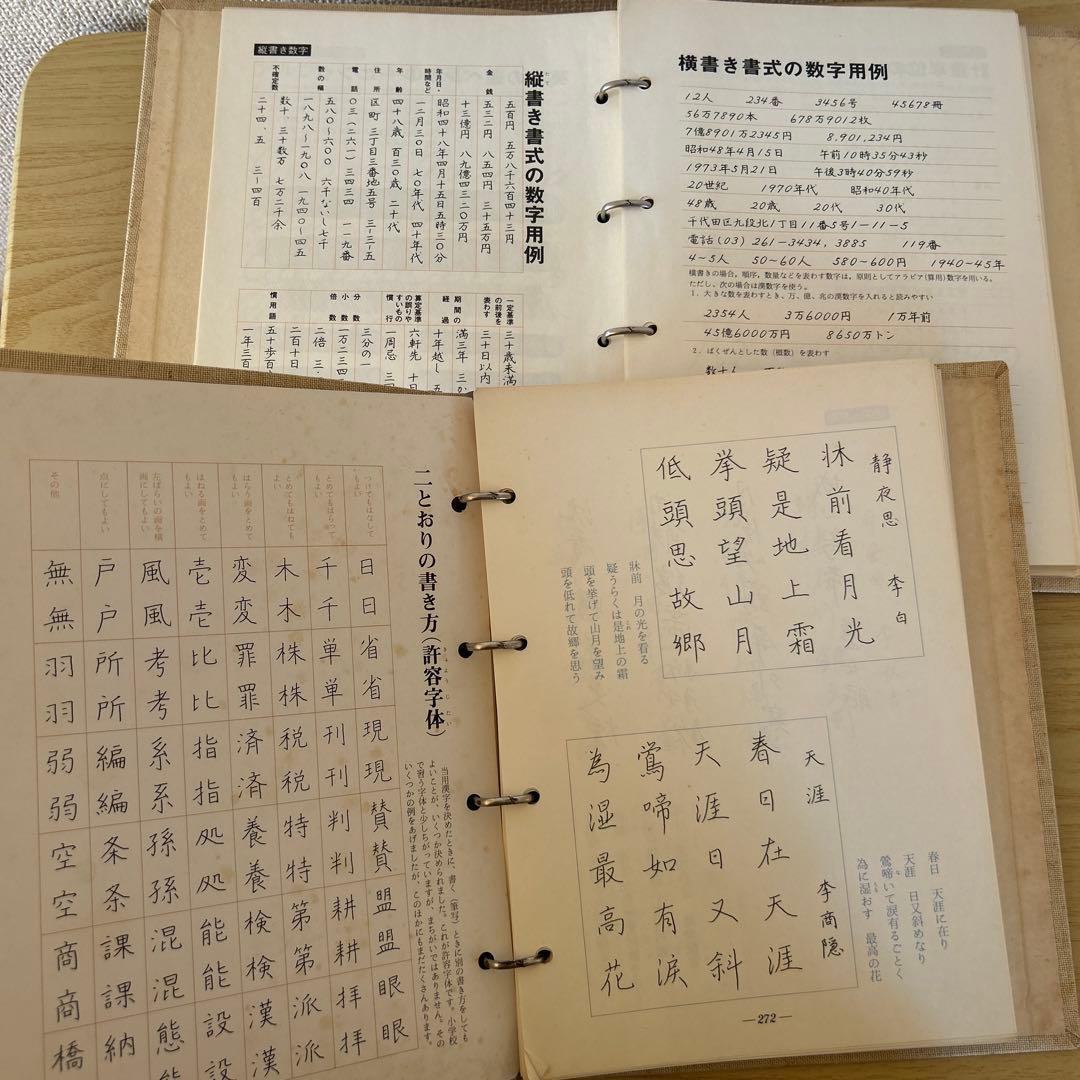 縦書き数字
縦書き書式の数字用例
金銭
五百円 五万八千六百四十三円
五三二円 八五四円 三十五万円
十三億円 八九億四三二〇万円
年月日・時間など
昭和四十八年四月十五日五時三〇分
一二月三〇日 七〇年代 四十年代
年齢
四十八歳 百三〇歳 二十代
住所
区町 三丁目三番地五号 三-三-五
電話
〇三(二六一)三四三四 一一九番
数の幅
五八〇〜六〇〇 六千ないし七千
一八九八〜一九〇八 一九四〇〜四五
不確定数
数十、三十数万 七万二千余
二十四、五 三〜四百
一定基準の前後を表わす
三十歳未満
三十日以内
期間の経過
満三年
十年越し
算定基準の誤りやすいもの
六軒先
慣行
一周忌
分数
三分の一
小数
倍数
二倍
慣用語
二百十日
五十歩百
横書き書式の数字用例
12人 234番 3456号 45678冊
56万7890本 678万9012枚
7億8901万2345円 8,901,234円
昭和48年4月15日 午前10時35分43秒
1973年5月21日 午後3時40分59秒
20世紀 1970年代 昭和40年代
48歳 20歳 20代 30代
千代田区九段北1丁目11番5号1-11-5
電話(03) 261-3434, 3885 119番
4〜5人 50〜60人 580〜600円 1940〜45年
横書きの場合,順序,数量などを表わす数字は,原則としてアラビア(算用)数字を用いる。
ただし,次の場合は漢数字を使う。
1.大きな数を表わすとき、万、億、兆の漢数字を入れると読みやすい
2354人 3万6000円 1万年前
45億6000万円 8650万トン
2.ばくぜんとした数(概数)を表わす
数十人
二とおりの書き方(許容字体)
きょようじたい
当用漢字を決めたときに、書く(筆写)ときに別の書き方をしても
よいことが、いくつか決められました。これが許容字体です。小学校
で習う字体と少しちがっていますが、まちがいではありません。その
いくつかの例をあげましたが、このほかにもまだたくさんあります。
つけてもはなしてもよい
日日省省現現賛賛盟盟眼眼
とめてもはらってもよい
千千単単刊刊判判耕耕拝拝
とめてもはねてもよい
木木株株税税特特第第派派
はらう画をとめてもよい
変変罪罪済済養養検検漢漢
はねる画をとめてもよい
壱壱比比指指処処能能設設
左ばらいの画を横画にしてもよい
風風考考系系孫孫混混態態
点にしてもよい
戸戸所所編編条条課課納
その他
無無羽羽弱弱空空商商橋
静夜思 李白
牀前看月光
疑是地上霜
挙頭望山月
低頭思故郷
牀前 月の光を看る
疑うらくは是地上の霜
これ
頭を挙げて山月を望み
頭を低れて故郷を思う
天涯 李商隠
春日在天涯
天涯日又斜
鶯啼如有涙
為湿最高花
春日 天涯に在り
天涯 日又斜めなり
鶯啼いて涙有るごとく
な
為に湿おす 最高の花
うるお
—272—